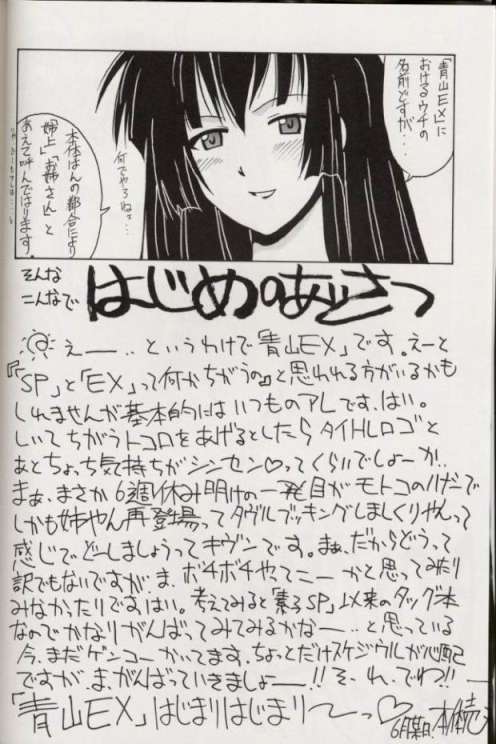 「青山EX」に
おけるウチの
名前どすが…
何でやろねぇ…
本体はんの都合により
姉上｣､｢お姉さん｣と
あえて呼んではります。
そんな
こんなで
はじめのあいさつ
えー…というわけで「青山EX」です。えーと
『「SP」と「EX」って何かちがうの』と思われる方がいるかも
しれませんが基本的にはいつものアレです、はい。
しいてちがうトコロをあげるとしたらタイトルロゴと
あとちょっち気持ちがシンセン♡ってくらいでしょーか‥
まぁ、まさか6週休み明けの一発目がモトコのハナシで
しかも姉やん再登場ってダヴルブッキングしまくりやんって
感じでどーしましょうってキヴンです。まぁ、だからどうって
訳でもないですが、ま、ボチボチやってこーかと思ってみたり
みなかったりですはい。考えてみると「素子SP」以来のタッグ本
なのでかなりがんばってみてみるかなー‥と思っている
今、まだゲンコーかいてます、ちょっとだけスケジウルが心配
ですが、ま、がんばっていきましょー!!そ、れ、でわ!!
「青山EX」はじまりはじまり〜っ♡
6月某日